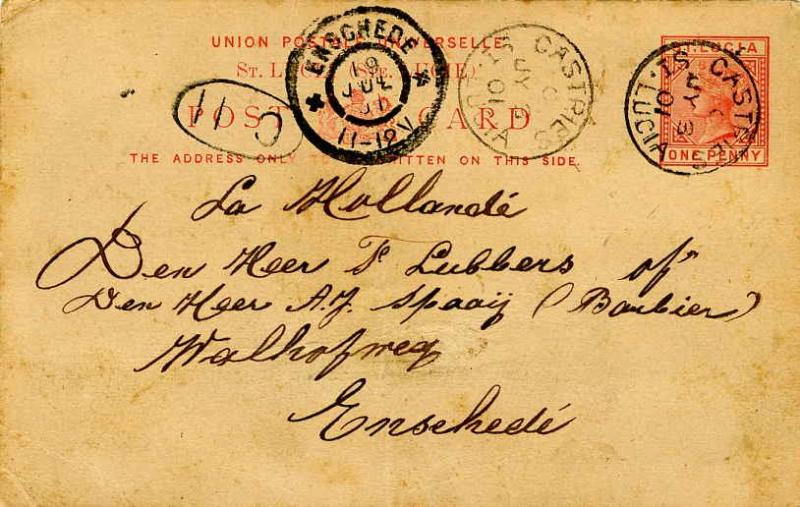 UNION POSTALE UNIVERSELLE
ST. LUCIA
POST CARD
THE ADDRESS ONLY TO BE WRITTEN ON THIS SIDE.
ST. LUCIA
ONE PENNY
ENSCHEDE
19
JUL
01
11-12V
CASTRIES
ST. LUCIA
C
JY
01
CASTRIES
ST. LUCIA
C
JY 3
01
C 11
La Hollandé
Den Heer F Lubbers of
Den Heer A.J. Spaaij (Barbier)
Walhofweg
Enschedé